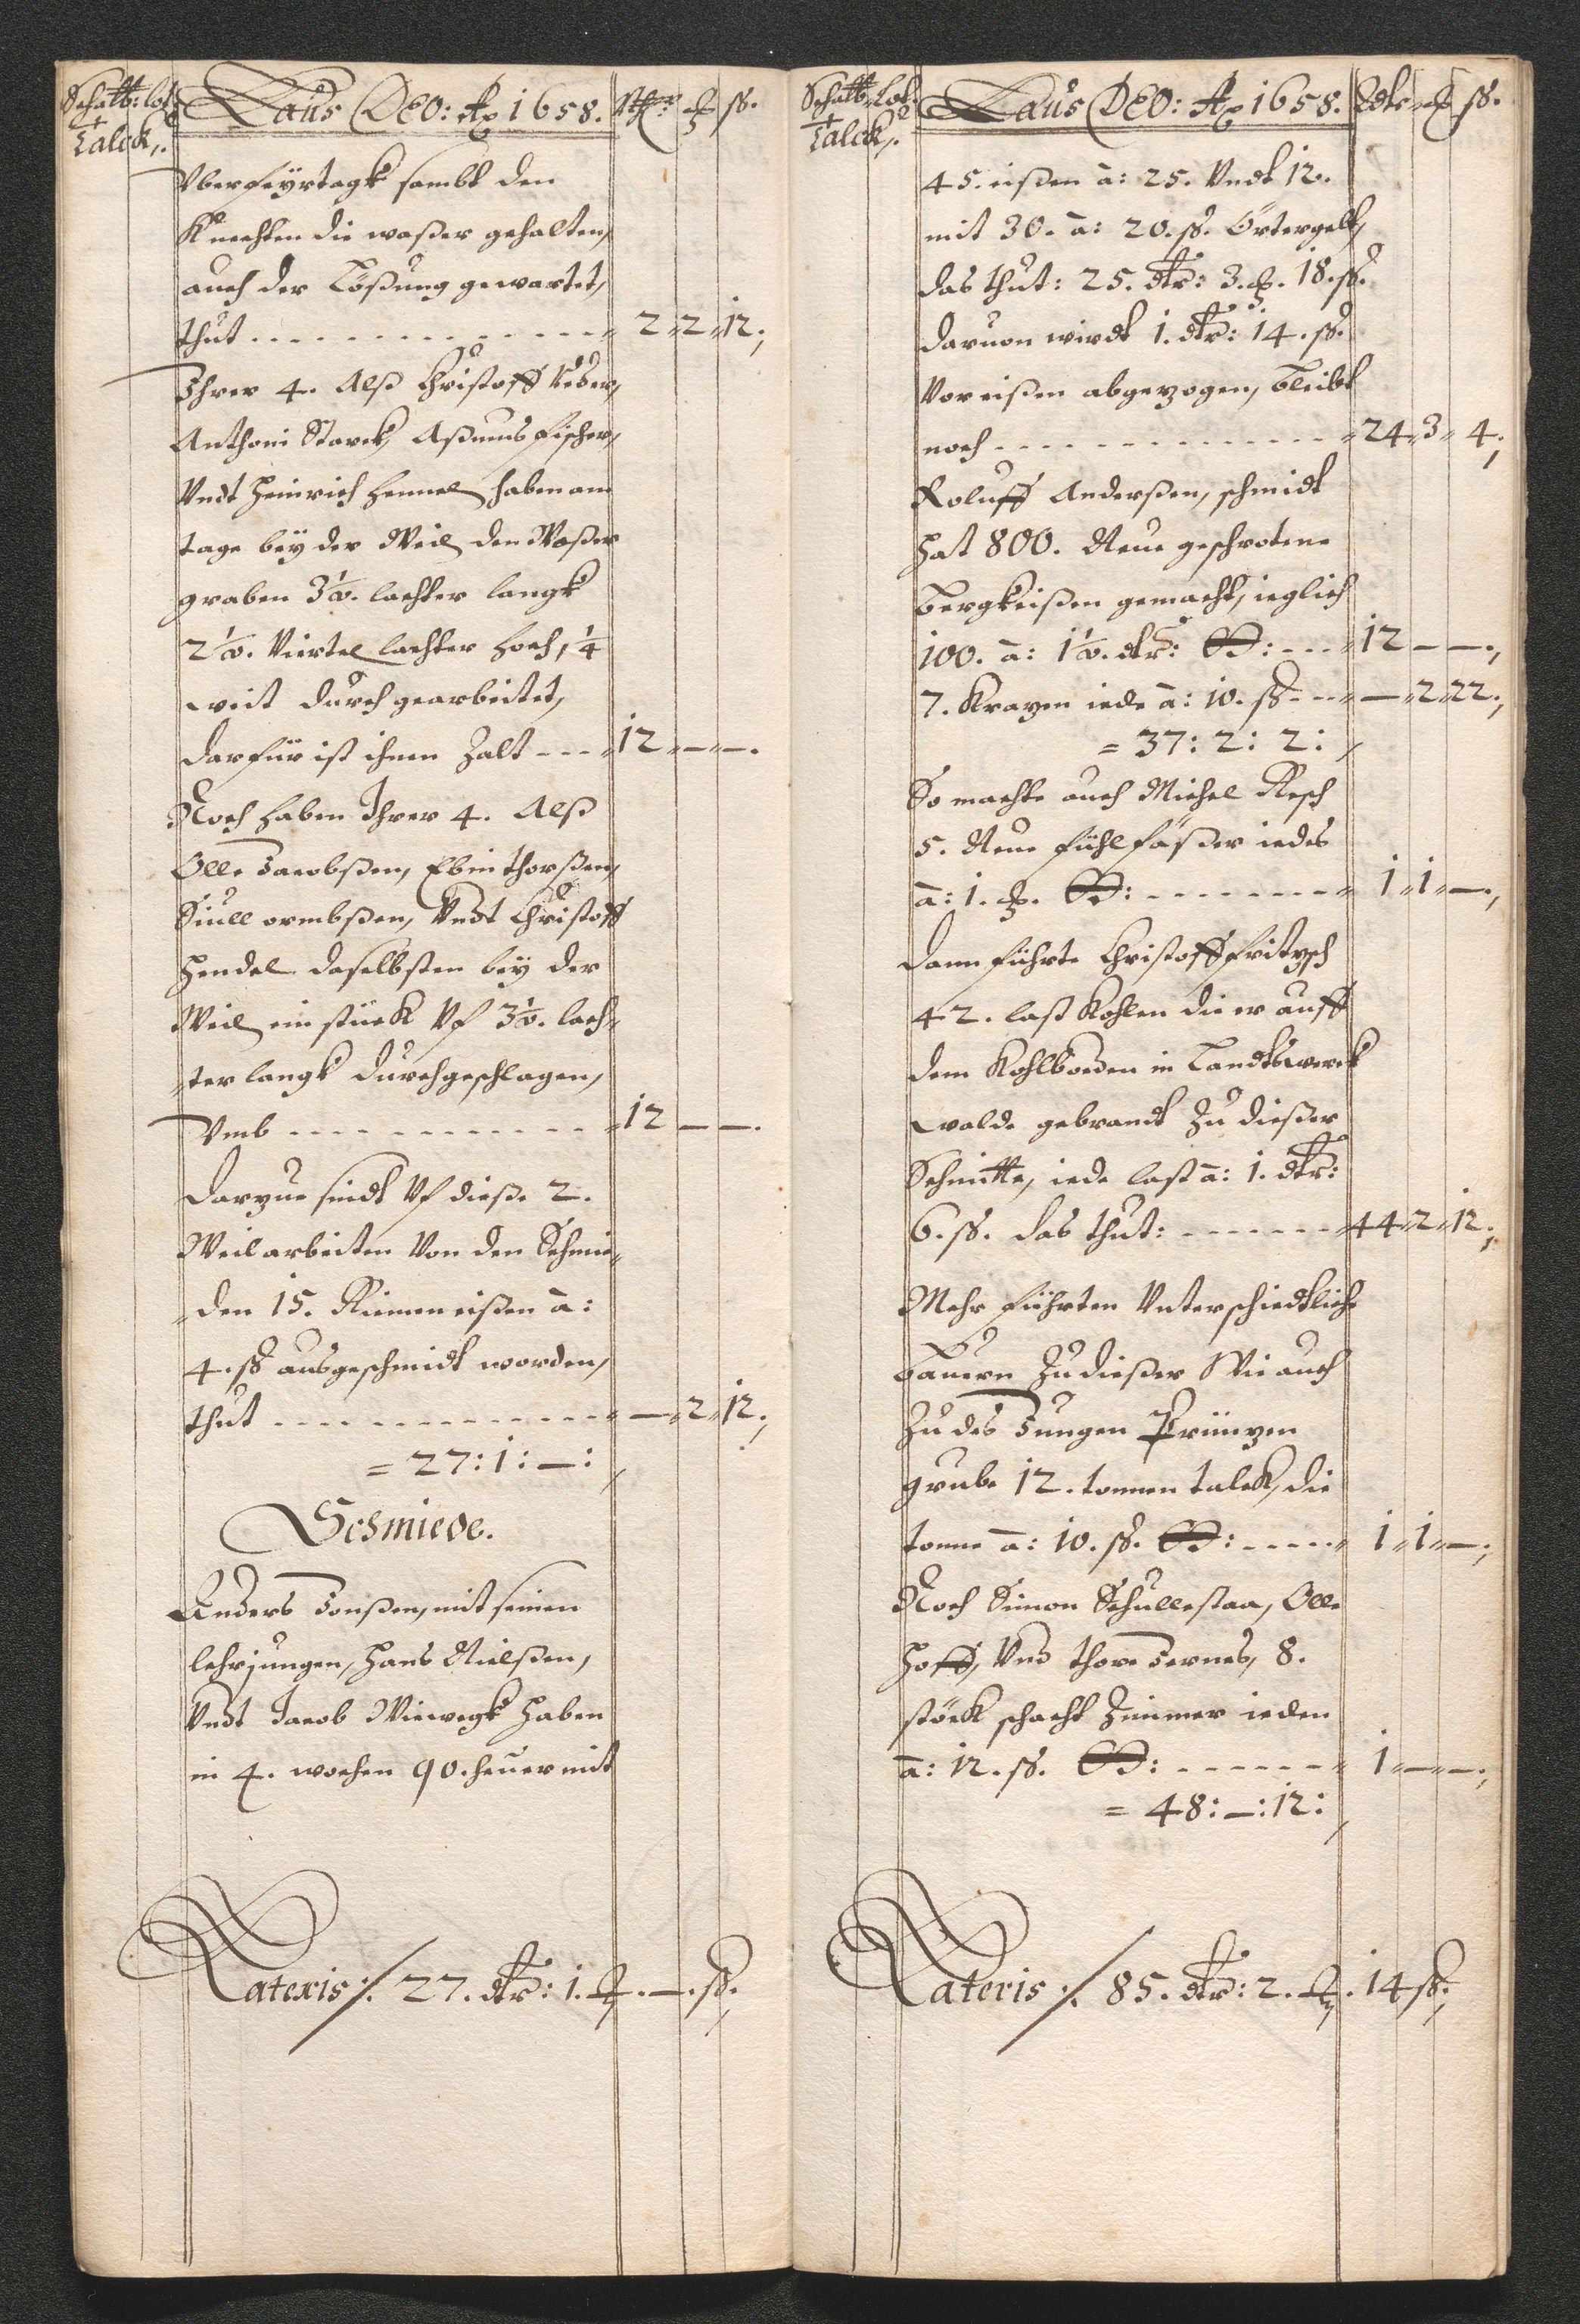 Schatt: lok
+
Talck,.
Laus DEO: Ao 1658. Rthr: ß.
Vberfeyrtagk sambt den
Knechten die waßer gehalten,
auch der Lößung gewartet,
thut - - - - 2 " 2 " 12 ;
Ihrer 4. Alß Christoff Veder,
Anthoni Starck, Aßmus Fischer,
Vndt Heinrich Hennel haben am
tage bey der Weil den Waßer
graben 3½. lachter langk
2½. Viertel lachter hoch, ¼
weit durch gearbeitet,
darfür ist ihnen Zalt - - - 12 " — " — .
Noch haben Ihrer 4. Alß
Olle Jacobßen, Ebin thorßen,
Siull ormbßen, Vndt Christoff
Hendel daselbsten bey der
Weil ein stück Vf 3½. lach"
"ter langk durchgeschlagen,
Vmb - - - - 12 — — .
Darzue sindt Vf dieße 2.
Weilarbeiten Von den Schmie"
"den 15. Riemen eißen à:
4. ß ausgeschmidt worden,
thut - - - - — " 2 " 12 ;
= 27 : 1 : — :
Schmiede.
Anders Jonßen, mit seinen
lehrjungen, Hans Nielßen,
Vndt Jacob Wiewegk haben
in 4. wochen 90. heuer mit
Lateris ./. 27. dlr: 1. — . ß.
Schatt: Lok:
+
Talck,.
Laus DEO: Ao 1658. Rdlr ß.
45. eißen à: 25. Vndt 12.
mit 30. à: 20. ß. Örtergelt,
das thut: 25. dlr: 3. 18. ß.
daruon wirdt 1. dlr: 14. ß.
Vor eißen abgezogen, bleibt
noch - - - - 24 " 3 " 4 ;
Roluff Anderßen, schmidt
hat 800. Neue geschrotene
bergkeißen gemacht, ieglich
100. à: 1½. dlr: - - - 12 — — ;
7. Krazen iede à: 10. ß - - — " 2 " 22 ;
= 37 : 2 : 2 :
So machte auch Michel Resch
5. Neue fühlfäßer iedes
à: 1. - - - - 1 " 1 " — ;
Dann führte Christoff fritzsch
42. last Kohlen die er auff
dem Kohlboeden in Landtswerck
walde gebrandt Zu dießer
Schmitte, iede last à: 1. dlr:
6. ß. das thut: - - - - 44 " 2 " 12 ;
Mehr führten Vnterschiedtliche
bauern Zu dießer Wie auch
Zu des Jungen Prinzen
grube 12. tonnen talck, die
tonne à: 10. ß. - - - - 1 " 1 " — ;
Noch Simon Schullestaa, Olle
Hoff, Vnd thore Jernes, 8.
stöck schacht Zimmer ieden
à: 12. ß. - - - - 1 " — " — ;
= 48 : — : 12 :
Lateris ./. 85. dlr: 2. 14 ß.